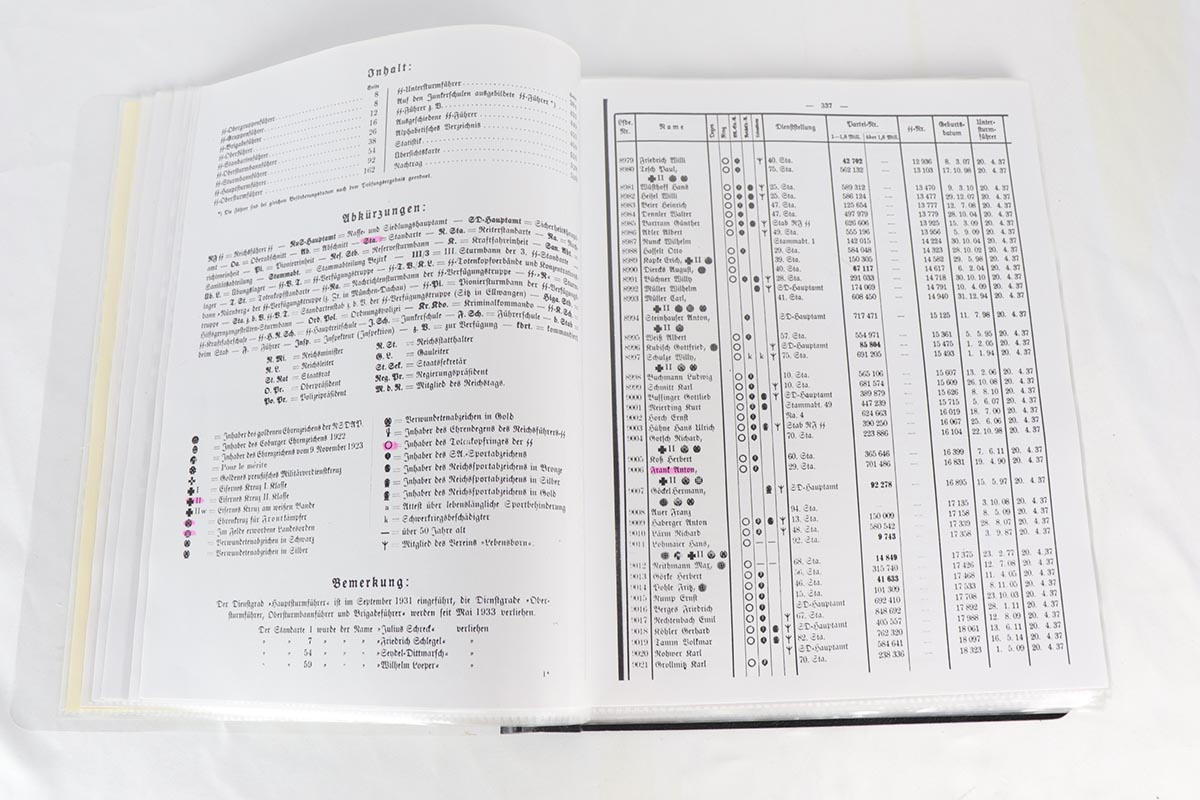 Inhalt:
Seite
SS-Obergruppenführer 8
SS-Gruppenführer 8
SS-Brigadeführer 12
SS-Oberführer 16
SS-Standartenführer 26
SS-Obersturmbannführer 38
SS-Sturmbannführer 54
SS-Hauptsturmführer 92
SS-Obersturmführer
SS-Untersturmführer
Auf den Junkerschulen ausgebildete SS-Führer *)
SS-Führer z. V.
Ausgeschiedene SS-Führer
Alphabetisches Verzeichnis
Statistik
Übersichtskarte
Nachtrag
*) Die Führer sind bei gleichem Beförderungsdatum nach dem Prüfungsergebnis geordnet.
Abkürzungen:
RF SS = Reichsführer SS — RuS-Hauptamt = Rasse- und Siedlungshauptamt — SD-Hauptamt = Sicherheitshaupt-
amt — Oa. = Oberabschnitt — Ab. = Abschnitt — Sta. = Standarte — R. Sta. = Reiterstandarte — Na. = Nach-
richteneinheit — Pi. = Pioniereinheit — Ref. Stb. = Reservesturmbann — K. = Kraftfahreinheit — San. Abt. =
Sanitätsabteilung — Stammabt. = Stammabteilung Bezirk — III/3 = III. Sturmbann der 3. SS-Standarte
R. Mi. = Reichsminister
R. L. = Reichsleiter
St. Rat = Staatsrat
O. Pr. = Oberpräsident
Po. Pr. = Polizeipräsident
R. St. = Reichsstatthalter
G. L. = Gauleiter
St. Sek. = Staatssekretär
Reg. Pr. = Regierungspräsident
M. d. R. = Mitglied des Reichstags.
= Inhaber des goldenen Ehrenzeichens der NSDAP.
= Inhaber des Coburger Ehrenzeichens 1922
= Inhaber des Ehrenzeichens vom 9. November 1923
= Pour le mérite
= Goldenes preußisches Militärverdienstkreuz
I = Eisernes Kreuz I. Klasse
II = Eisernes Kreuz II. Klasse
IIw = Eisernes Kreuz am weißen Bande
= Ehrenkreuz für Frontkämpfer
= Im Felde erworbene Landesorden
= Verwundetenabzeichen in Schwarz
= Verwundetenabzeichen in Silber
= Verwundetenabzeichen in Gold
= Inhaber des Ehrendegens des Reichsführers-SS
= Inhaber des Totenkopfringes der SS
= Inhaber des SA-Sportabzeichens
= Inhaber des Reichssportabzeichens in Bronze
= Inhaber des Reichssportabzeichens in Silber
= Inhaber des Reichssportabzeichens in Gold
= Attest über lebenslängliche Sportbehinderung
k = Schwerkriegsbeschädigter
— = über 50 Jahre alt
= Mitglied des Vereins »Lebensborn«.
Bemerkung:
Der Dienstgrad »Hauptsturmführer« ist im September 1931 eingeführt, die Dienstgrade »Ober-
sturmführer, Obersturmbannführer und Brigadeführer« werden seit Mai 1933 verliehen.
Der Standarte 1 wurde der Name »Julius Schreck« verliehen
» » 7 » » » »Friedrich Schlegel« »
» » 54 » » » »Seydel-Dittmarsch« »
» » 59 » » » »Wilhelm Loeper« »
1*
— 337 —
Lfde. Nr. Name Degen Ring Dienststellung Partei-Nr. 1—1,8 Mill. über 1,8 Mill. SS-Nr. Geburts-datum Unter-sturm-führer
8979 Friedrich Willi 40. Sta. 42 702 — 12 936 8. 3. 07 20. 4. 37
8980 Tesch Paul, II 75. Sta. 562 132 — 13 103 17. 10. 98 20. 4. 37
8981 Wüsthoff Hans 25. Sta. 589 312 — 13 470 9. 3. 10 20. 4. 37
8982 Heisel Willi 25. Sta. 586 124 — 13 477 29. 12. 07 20. 4. 37
8983 Beier Heinrich 47. Sta. 125 654 — 13 777 12. 7. 08 20. 4. 37
8984 Dennler Walter 47. Sta. 497 979 — 13 779 28. 10. 04 20. 4. 37
8985 Bartram Günther Stab RF SS 626 606 — 13 925 15. 3. 09 20. 4. 37
8986 Adler Albert 49. Sta. 555 196 — 13 956 5. 9. 09 20. 4. 37
8987 Nunck Wilhelm Stammabt. 1 142 015 — 14 224 30. 10. 04 20. 4. 37
8988 Haffelt Otto 29. Sta. 584 048 — 14 323 28. 10. 02 20. 4. 37
8989 Kapke Erich, II 39. Sta. 150 305 — 14 582 29. 5. 98 20. 4. 37
8990 Diercks August, 40. Sta. 67 117 — 14 617 6. 2. 04 20. 4. 37
8991 Büchner Willy 28. Sta. 291 033 — 14 718 30. 10. 10 20. 4. 37
8992 Müller Wilhelm SD-Hauptamt 174 069 — 14 791 10. 4. 09 20. 4. 37
8993 Müller Carl, II 41. Sta. 608 450 — 14 940 31. 12. 94 20. 4. 37
8994 Steinhauser Anton, II SD-Hauptamt 717 471 — 15 125 11. 7. 98 20. 4. 37
8995 Weiß Albert 57. Sta. 554 971 — 15 361 5. 5. 95 20. 4. 37
8996 Kubisch Gottfried, SD-Hauptamt 85 804 — 15 475 1. 2. 05 20. 4. 37
8997 Schulze Willy, II k k 75. Sta. 691 205 — 15 493 1. 1. 94 20. 4. 37
8998 Buchmann Ludwig 10. Sta. 565 106 — 15 607 13. 2. 06 20. 4. 37
8999 Schmitt Karl 10. Sta. 681 574 — 15 609 26. 10. 08 20. 4. 37
9000 Buffinger Gottlieb SD-Hauptamt 389 879 — 15 626 8. 8. 10 20. 4. 37
9001 Meierding Kurt Stammabt. 49 447 239 — 15 715 5. 6. 07 20. 4. 37
9002 Horch Ernst Na. 4 624 663 — 16 019 18. 7. 00 20. 4. 37
9003 Hühne Hans Ulrich Stab RF SS 390 250 — 16 067 25. 6. 06 20. 4. 37
9004 Gotsch Richard, II 70. Sta. 223 886 — 16 104 22. 10. 98 20. 4. 37
9005 Koß Herbert 60. Sta. 365 646 — 16 399 7. 6. 11 20. 4. 37
9006 Frank Anton, II 29. Sta. 701 486 — 16 831 19. 4. 90 20. 4. 37
9007 Göckel Hermann, SD-Hauptamt 92 278 — 16 895 15. 5. 97 20. 4. 37
9008 Auer Franz 94. Sta. 17 135 3. 10. 08 20. 4. 37
9009 Haberger Anton 13. Sta. 150 009 — 17 158 8. 5. 09 20. 4. 37
9010 Lärm Richard 48. Sta. 580 542 — 17 339 28. 8. 07 20. 4. 37
9011 Lohmaier Hans, II 92. Sta. 9 743 — 17 358 3. 9. 87 20. 4. 37
9012 Reithmann Max, 68. Sta. 14 849 17 375 23. 2. 77 20. 4. 37
9013 Görke Herbert 56. Sta. 315 740 — 17 426 12. 7. 08 20. 4. 37
9014 Pohle Fritz, 46. Sta. 41 633 — 17 468 11. 4. 05 20. 4. 37
9015 Rump Ernst 15. Sta. 101 309 — 17 533 8. 11. 05 20. 4. 37
9016 Berges Friedrich SD-Hauptamt 692 410 — 17 708 23. 10. 03 20. 4. 37
9017 Rechtenbach Emil 67. Sta. 848 692 — 17 892 28. 1. 11 20. 4. 37
9018 Köhler Gerhard SD-Hauptamt 405 557 — 17 988 12. 8. 09 20. 4. 37
9019 Damm Volkmar 82. Sta. 762 320 — 18 061 13. 6. 11 20. 4. 37
9020 Rohwer Karl SD-Hauptamt 584 641 — 18 097 16. 5. 14 20. 4. 37
9021 Grollmitz Karl 70. Sta. 238 336 — 18 323 1. 5. 09 20. 4. 37